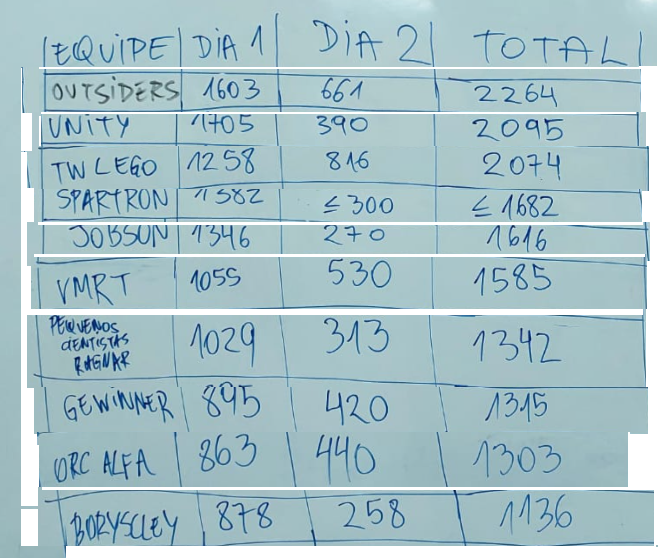 EQUIPE DIA 1 DIA 2 TOTAL
OUTSIDERS 1603 661 2264
UNITY 1705 390 2095
TW LEGO 1258 816 2074
SPARTRON 1382 ≤300 ≤1682
JOBSON 1346 270 1616
VMRT 1055 530 1585
PEQUENOS
CIENTISTAS
RAGNAR 1029 313 1342
GEWINNER 895 420 1315
ORC ALFA 863 440 1303
BORYSCLEY 878 258 1136